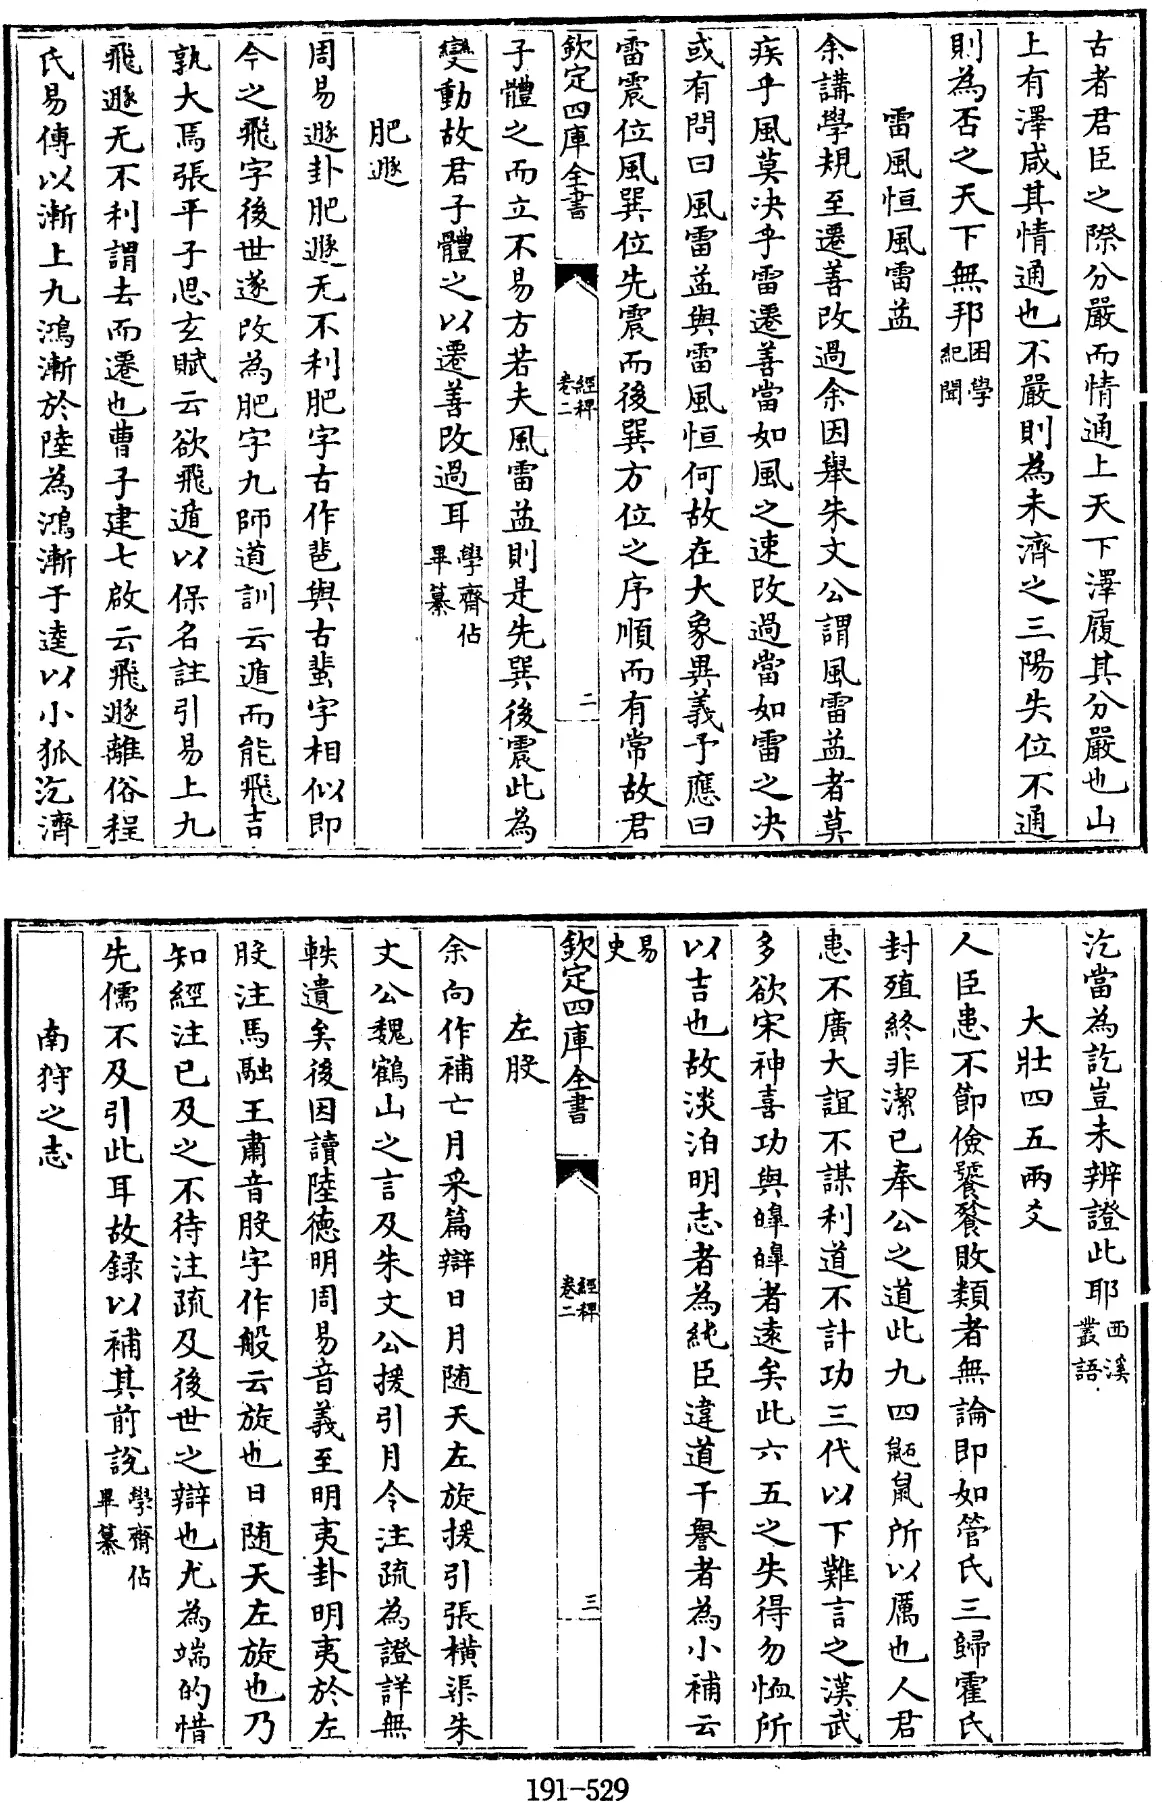 古者君臣之際分嚴而情通上天下澤履其分嚴也山
上有澤咸其情通也不嚴則為未濟之三陽失位不通
則為否之天下無邦困學紀聞
雷風恒風雷益
余講學規至遷善改過余因舉朱文公謂風雷益者莫
疾乎風莫决乎雷遷善當如風之速改過當如雷之决
或有問曰風雷益與雷風恒何故在大象異義予應曰
雷震位風巽位先震而後巽方位之序順而有常故君
欽定四庫全書
經稗
卷二
二
子體之而立不易方若夫風雷益則是先巽後震此為
變動故君子體之以遷善改過耳學齋佔畢纂
肥遯
周易遯卦肥遯无不利肥字古作𦙀與古蜚字相似即
今之飛字後世遂改為肥字九師道訓云遁而能飛吉
孰大焉張平子思玄賦云欲飛遁以保名註引易上九
飛遯无不利謂去而遷也曹子建七啟云飛遯離俗程
氏易傳以漸上九鴻漸於陸為鴻漸于逵以小狐汔濟
汔當為訖豈未辨證此耶西溪叢語
大壯四五兩爻
人臣患不節儉饕餮敗類者無論即如管氏三歸霍氏
封殖終非潔已奉公之道此九四鼫鼠所以厲也人君
患不廣大誼不謀利道不計功三代以下難言之漢武
多欲宋神喜功與皥皥者遠矣此六五之失得勿恤所
以吉也故淡泊明志者為純臣違道干譽者為小補云
易史
欽定四庫全書
經稗
卷二
三
左股
余向作補亡月采篇辯日月随天左旋援引張横渠朱
文公魏鶴山之言及朱文公援引月令注疏為證詳無
軼遺矣後因讀陸德明周易音義至明夷卦明夷於左
股注馬融王肅音股字作般云旋也日随天左旋也乃
知經注已及之不待注疏及後世之辯也尤為端的惜
先儒不及引此耳故録以補其前說學齋佔畢纂
南狩之志
191-529